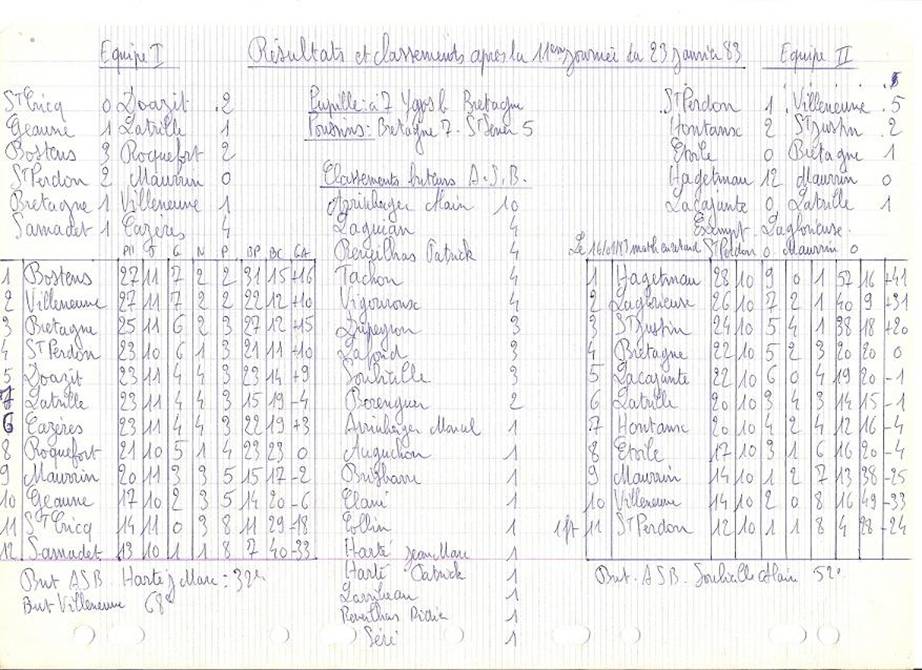 Equipe I
Résultats et classements après la 11ème journée du 23 Janvier 83
Equipe II
St Cricq 0 Doazit 2
Geaune 1 Latrille 1
Bostens 3 Roquefort 2
St Perdon 2 Maurrin 0
Bretagne 1 Villeneuve 1
Samadet 1 Cazères 4
Pupille: à 7 Ygos 6 Bretagne
Poussins: Bretagne 7 - St Sever 5
St Perdon 1 Villeneuve 5
Hontanx 2 St Justin 2
Etoile 0 Bretagne 1
Hagetmau 12 Maurrin 0
Lacajunte 0 Latrille 1
Exempt Laglorieuse
Le 16/01/83 match en retard St Perdon 0 Maurrin 0
Pts J G N P BP BC GA
1 Bostens 27 11 7 2 2 31 15 +16
2 Villeneuve 27 11 7 2 2 22 12 +10
3 Bretagne 25 11 6 2 3 27 12 +15
4 St Perdon 23 10 6 1 3 21 11 +10
5 Doazit 23 11 4 4 3 23 14 +9
7 Latrille 23 11 4 4 3 15 19 -4
6 Cazères 23 11 4 4 3 22 19 +3
8 Roquefort 21 10 5 1 4 23 23 0
9 Maurrin 20 11 3 3 5 15 17 -2
10 Geaune 17 10 2 3 5 14 20 -6
11 St Cricq 14 11 0 3 8 11 29 -18
12 Samadet 13 10 1 1 8 7 40 -33
But ASB. Harté J Marc : 32e
But Villeneuve 68e
Classements buteurs A.S.B.
Alain 10
Laguian 4
Patrick 4
Tachon 4
Vigouroux 4
Dupeyron 3
Lafond 3
Soubielle 3
Berenguer 2
Marcel 1
Auguchon 1
Brisbarre 1
Clavé 1
Ellin 1
Harté Jean Marc 1
Harté Patrick 1
Larribeau 1
Didier 1
Séré 1
1 Hagetmau 28 10 9 0 1 57 16 +41
2 Laglorieuse 26 10 7 2 1 40 9 +31
3 St Justin 24 10 5 4 1 38 18 +20
4 Bretagne 22 10 5 2 3 20 20 0
5 Lacajunte 22 10 6 0 4 19 20 -1
6 Latrille 20 10 3 4 3 14 15 -1
7 Hontanx 20 10 4 2 4 12 16 -4
8 Etoile 17 10 3 1 6 16 20 -4
9 Maurrin 14 10 1 2 7 13 38 -25
10 Villeneuve 14 10 2 0 8 16 49 -33
1pt 11 St Perdon 12 10 1 1 8 4 28 -24
But. ASB. Soubielle Alain 52e